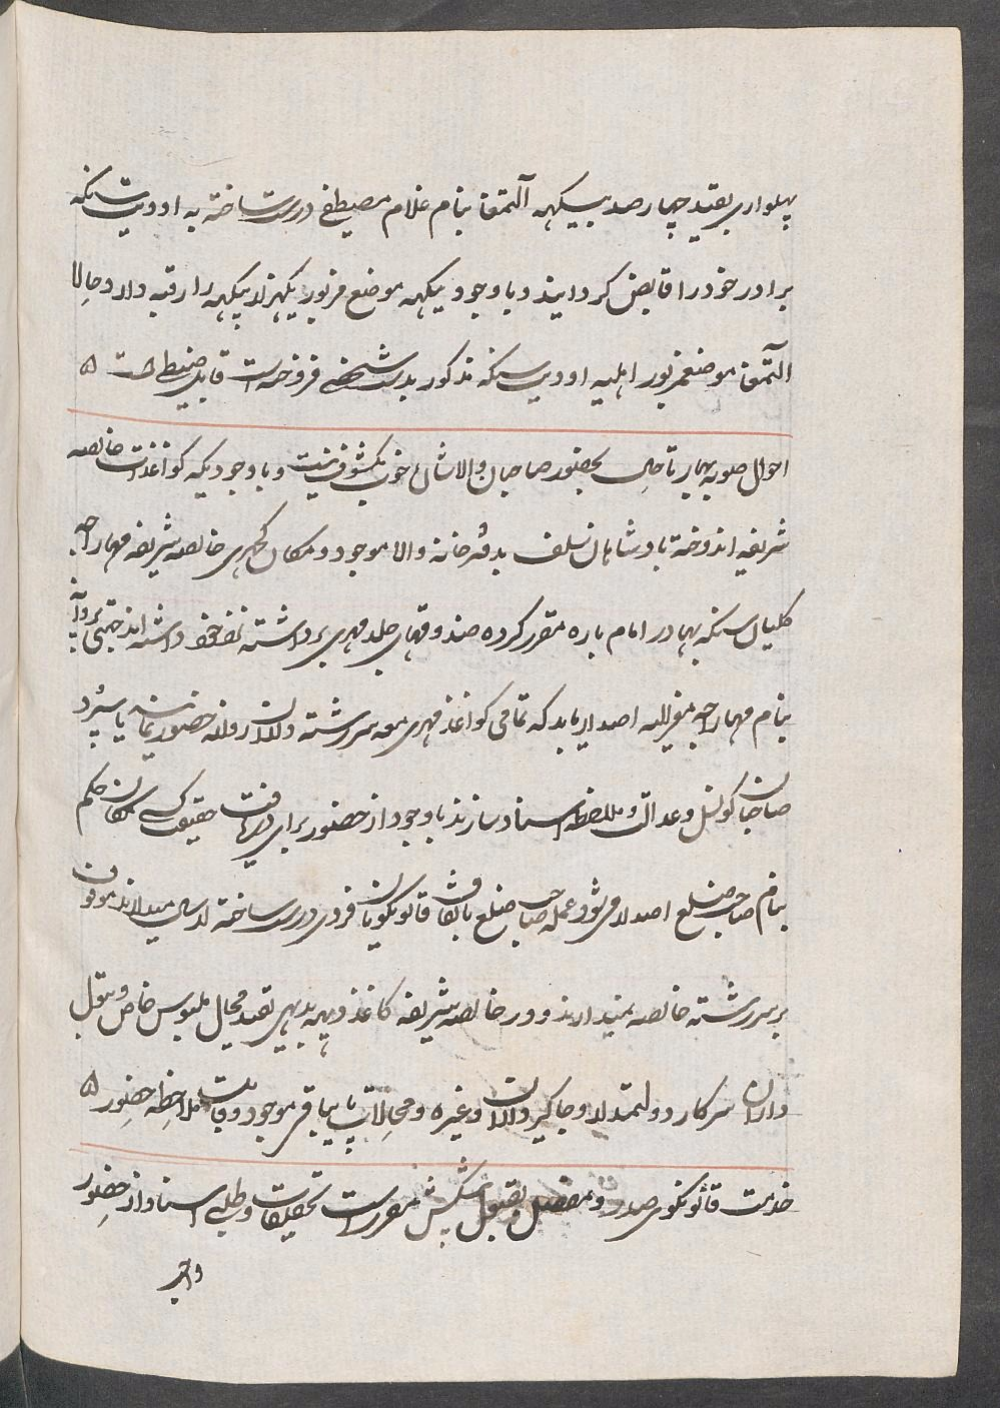 پهلواری بقید چهار صد بیگهه آلتمغا بنام غلام مصطفی درست ساخته به اوودیت سنکه
برادر خود را قابض کردانید و با وجود یکهه موضع مزبور یکهزار بیگهه را رقبه دارد حالا
التمغا موضع مزبور اهلیه اوودیت سنکه مذکور بدست شخصی فروخته است قابل ضبطی است ۵
احوال صوبه بهار تا حال بحضور صاحبان والاشان خوب مکشوف نیست و با وجودیکه کواغذات خالصه
شریفه اندوخته بادشاهان سلف بدفتر خانه والا موجود و مکان کچهری خالصه شریفه مهاراجه
کلیان سنکه بهادر امام باره مقرر کرده صندوقهای جلد مهری برداشته نزد خود داشته اند چنانچه پروانه
بنام مهاراجه معزالیه اصدار یابد که تمامی کواغذ مهری معه سررشته داران روانه حضور نماید یا سپرد
صاحبان کونسل و عدالت و ملاحظه اسناد سازند باوجود از حضور برای دریافت حقیقت مکان حکم
بنام صاحب ضلع اصدار میشود و عمله صاحب ضلع باتفاق قانونکویان فردی درست ساخته ارسال میدارند موقوف
بر سررشته خالصه نمیدارند و در خالصه شریفه کاغذ دیهه بدیهی بقید محال ملبوس خاص و
داران سرکار دولتمدار و جاکیرداران وغیره و محالات پایباقی موجود و قابل ملاحظه حضور ۵
خدمت قانونکوی صدر و مفصل بقبول پیشکش مقرر است تحقیقات و طلب اسناد از حضور
واجب